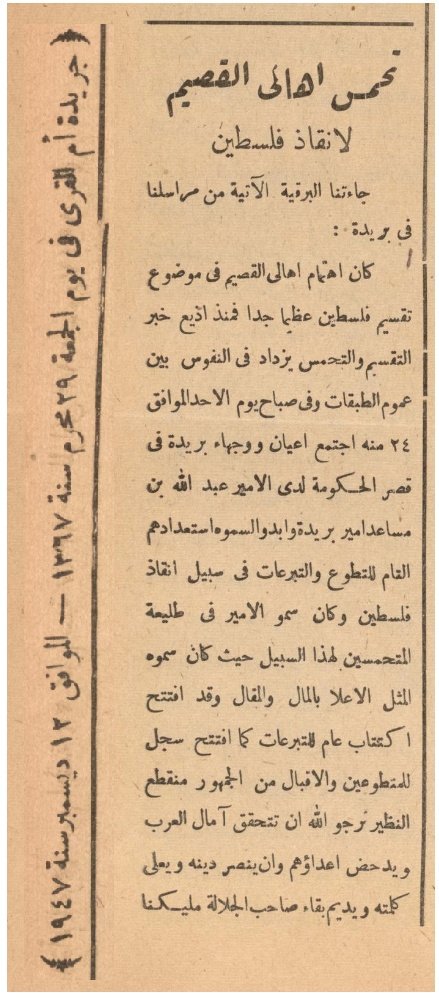 ﴿ جريدة أم القرى فى يوم الجمعة ٢٩ محرم سنة ١٣٦٧ — الموافق ١٢ ديسمبر سنة ١٩٤٧ ﴾
تحمس اهالى القصيم
لانقاذ فلسطين
جاءتنا البرقية الآتية من مراسلنا
فى بريدة :
كان اهتمام اهالى القصيم فى موضوع
تقسيم فلسطين عظيما جدا فمنذ اذيع خبر
التقسيم والتحمس يزداد فى النفوس بين
عموم الطبقات وفى صباح يوم الاحد الموافق
٢٤ منه اجتمع اعيان ووجهاء بريدة فى
قصر الحكومة لدى الامير عبد الله بن
مساعد امير بريدة وابدو السموه استعدادهم
التام للتطوع والتبرعات فى سبيل انقاذ
فلسطين وكان سمو الامير فى طليعة
المتحمسين لهذا السبيل حيث كان سموه
المثل الاعلا بالمال والمقال وقد افتتح
اكتتاب عام للتبرعات كما افتتح سجل
للمتطوعين والاقبال من الجمهور منقطع
النظير نرجو الله ان تتحقق آمال العرب
ويدحض اعداؤهم وان ينصر دينه ويعلى
كلمته ويديم بقاء صاحب الجلالة مليكنا